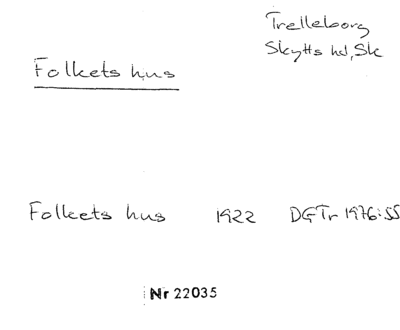 Trelleborg
Skytts hd, Sk
Folkets hus
Folkets hus 1922 DGTr 1976:55
Nr 22035